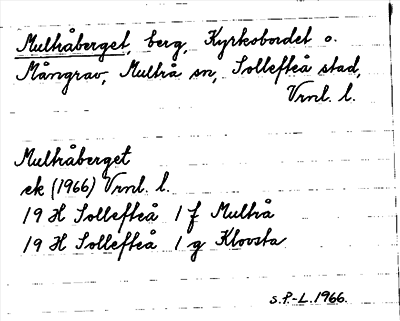 Multråberget, berg, Kyrkobordet o.
Mångrav, Multrå sn, Sollefteå stad,
Vrnl. l.
Multråberget
ek (1966) Vrnl. l.
19 H Sollefteå 1 f Multrå
19 H Sollefteå 1 g Klovsta
S.P.-L. 1966.